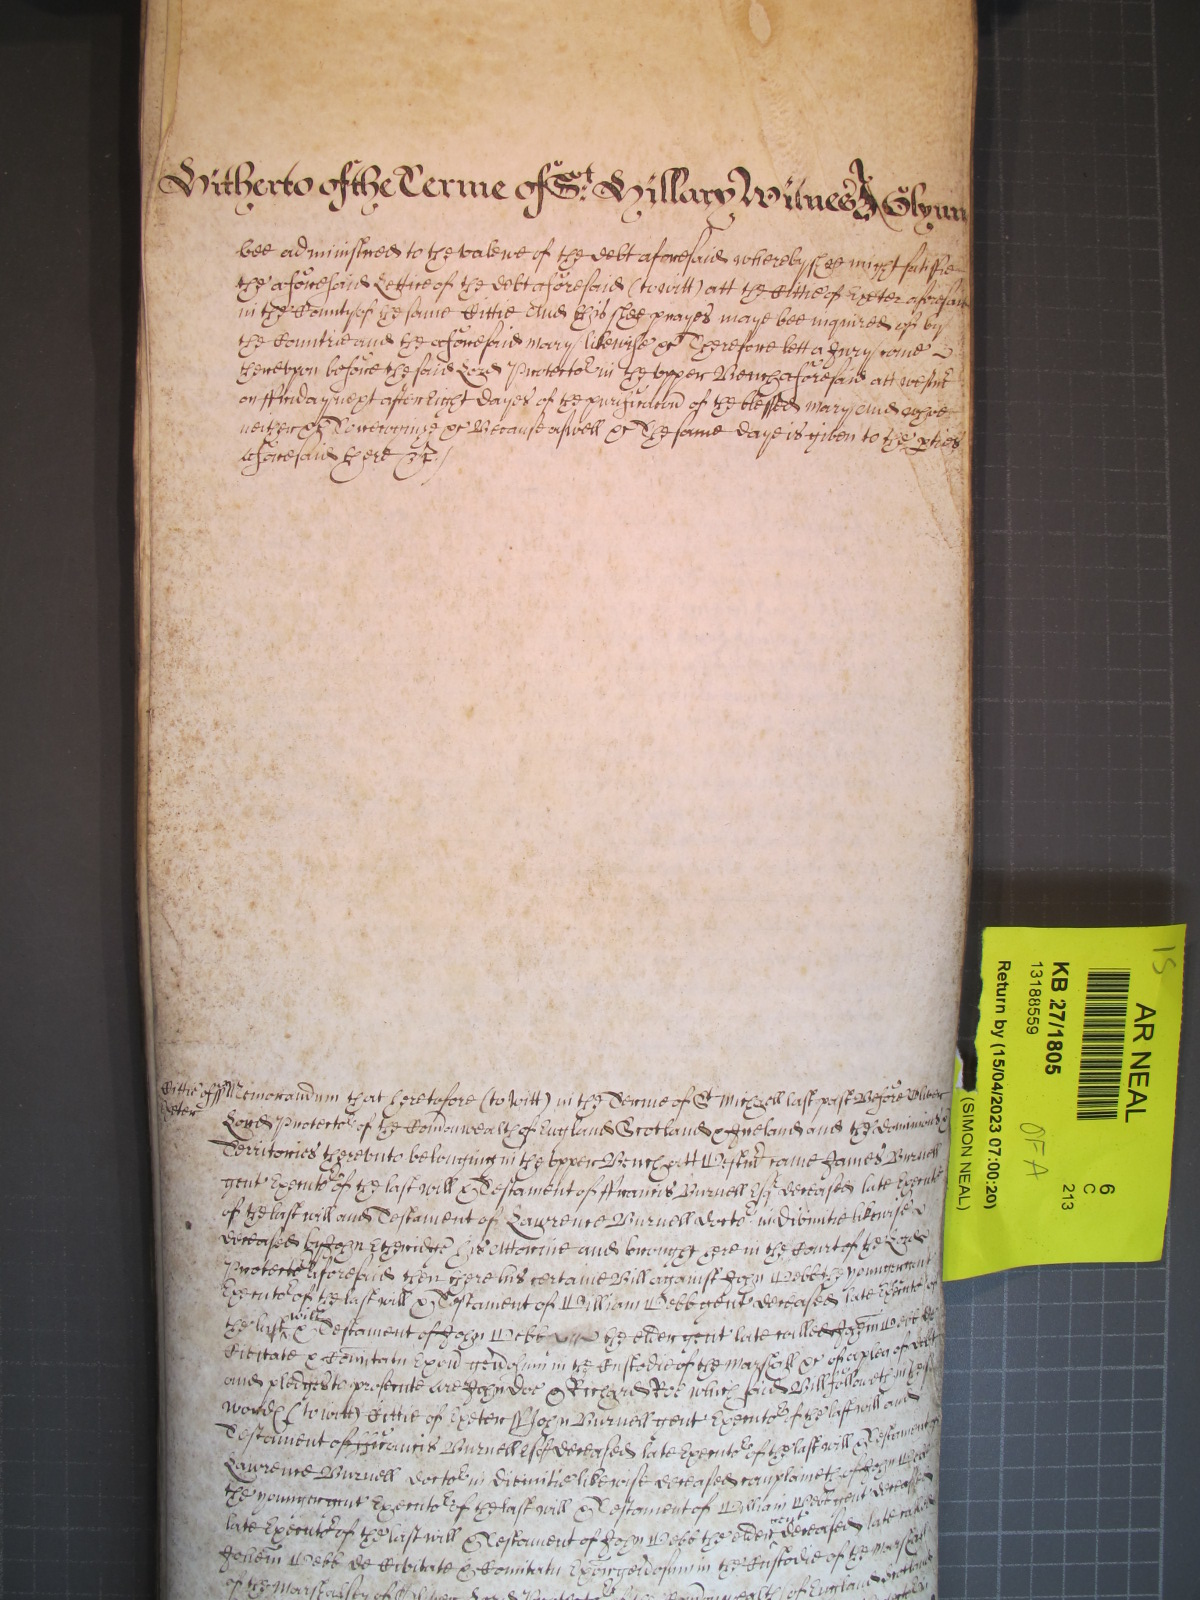 Hitherto of the Terme of St. Hillary Witnes Glynn
bee administred to the valewe of the debt aforesaid whereby shee might satisfie
the aforesaid Lettice of the debt aforesaid (to witt) att the Cittie of Exeter aforesaid
in the County of the same Cittie And this shee prayes maye bee inquired of by
the Countrie and the aforesaid Mary likewise &c Therefore lett a Jury come
thereupon before the said Lord Protector in the upper Bench aforesaid att Westmr
on ffriday next after Eight dayes of the purificacon of the blessed Mary And whoe
neither &c To recognize &c Because aswell &c The same daye is given to the pties
aforesaid here &c /
Cittie of ss Memorandum that heretofore (to witt) in the Terme of St Michaell last past Before Oliver
Exeter Lord Protector of the Comonwealth of England Scotland & Ireland and the dominions &
Territories thereunto belonging in the upper Bench att Westmr came James Burnell
gent Executor of the last will & Testament of ffrancis Burnell Esqr deceased late Executor
of the last will and Testament of Lawrence Burnell doctor in divinitie likewise
deceased by John Etheridge his Attornie and brought here in the Court of the Lord
Protector aforesaid then there his certaine Bill against John Webb the younger gent
Executor of the last will & Testament of William Webb gent deceased late Executor of
the last will & Testament of John Webb the elder gent late called John Webb de
Civitate & Comitatu Exon generosum in the Custodie of the Marshall &c of a plea of debt
and pledges to prosecute are John Doe & Richard Roe which said Bill followeth in these
words (to witt) Cittie of Exeter ss John Burnell gent Executor of the last will and
Testament of ffrancis Burnell Esqr deceased late Executor of the last will & Testament of
Lawrence Burnell doctor in divinitie likewise deceased complaineth of John Webb
the younger gent Executor of the last will & Testament of William Webb gent deceased
late Executor of the last will & Testament of John Webb the elder gent deceased late called
Johem Webb de Civitate & Comitatu Exon generosum in the Custodie of the Marshall
of the Marshalsey of Oliver Lord Protector of the Comonwealth of England Scotland
15
AR NEAL
6
C
213
KB 27/1805
13188559
OFA
Return by (15/04/2023 07:00:20)
(SIMON NEAL)